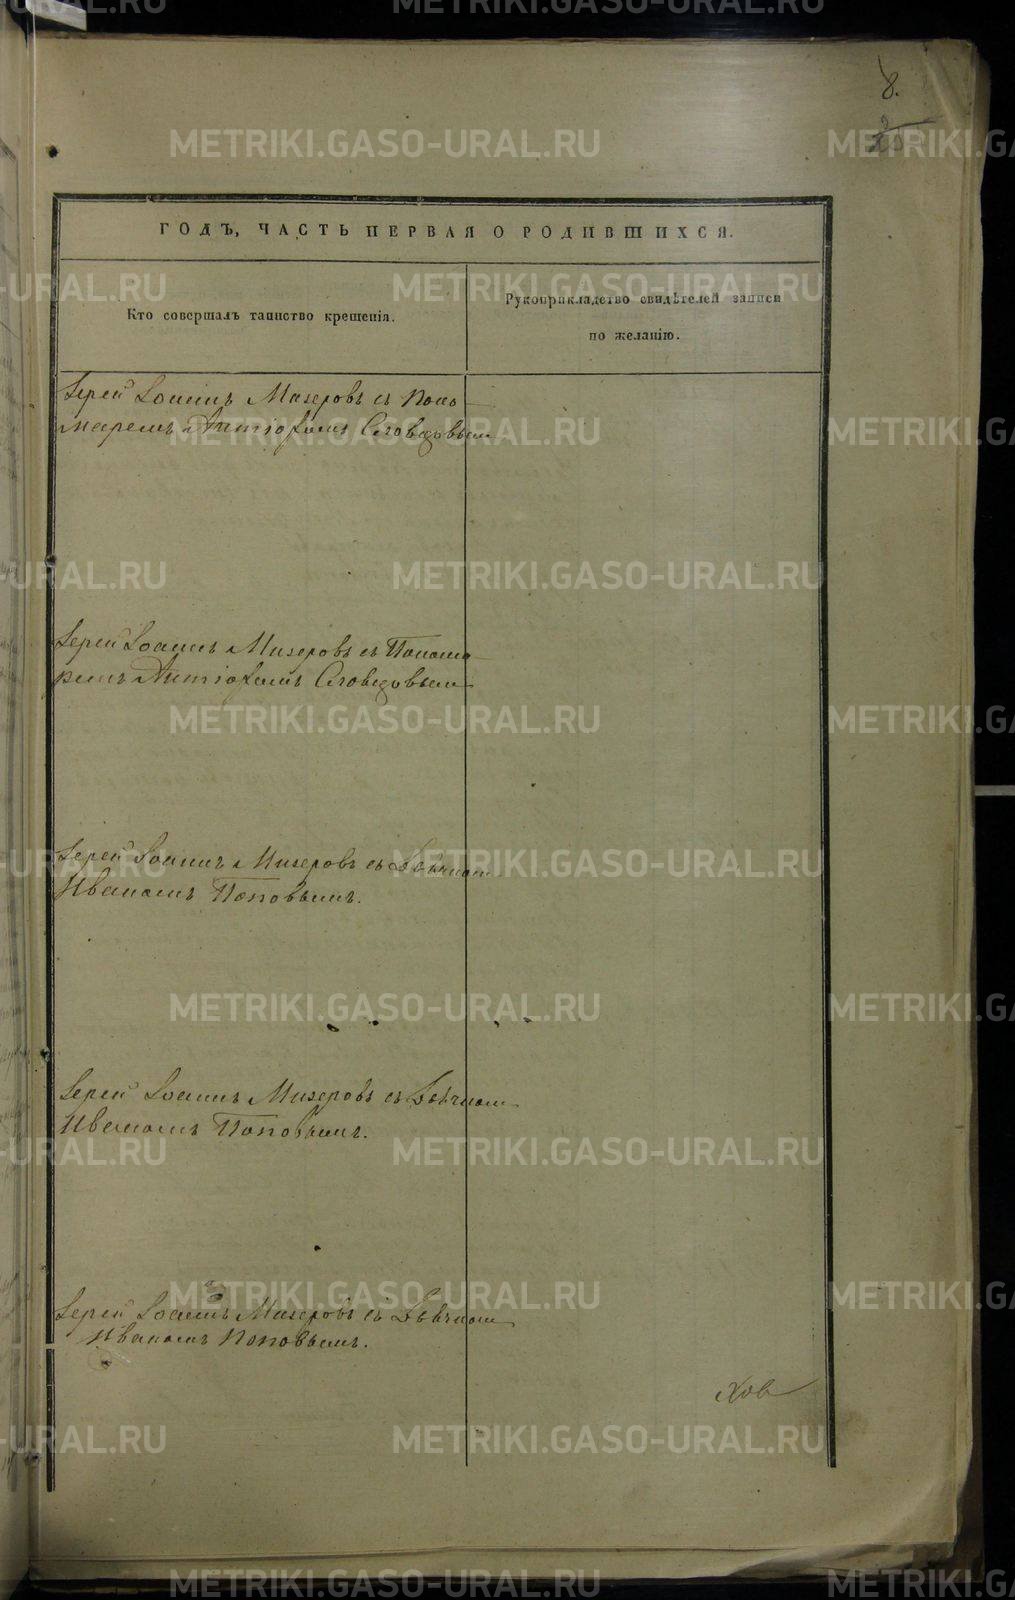 8.
ГОДЪ, ЧАСТЬ ПЕРВАЯ О РОДИВШИХСЯ.
Кто совершалъ таинство крещенія.
Рукоприкладство свидѣтелей записи
по желанію.
Іерей Іоаннъ Мизеровъ съ Поно
маремъ Антіофомъ Словцовымъ
Іерей Іоаннъ Мизеровъ съ Понома
ремъ Антіофомъ Словцовымъ
Іерей Іоаннъ Мизеровъ съ Дьячкомъ
Иваномъ Поповымъ.
Іерей Іоаннъ Мизеровъ съ Дьячкомъ
Иваномъ Поповымъ.
Іерей Іоаннъ Мизеровъ съ Дьячкомъ
Иваномъ Поповымъ.
METRIKI.GASO-URAL.RU